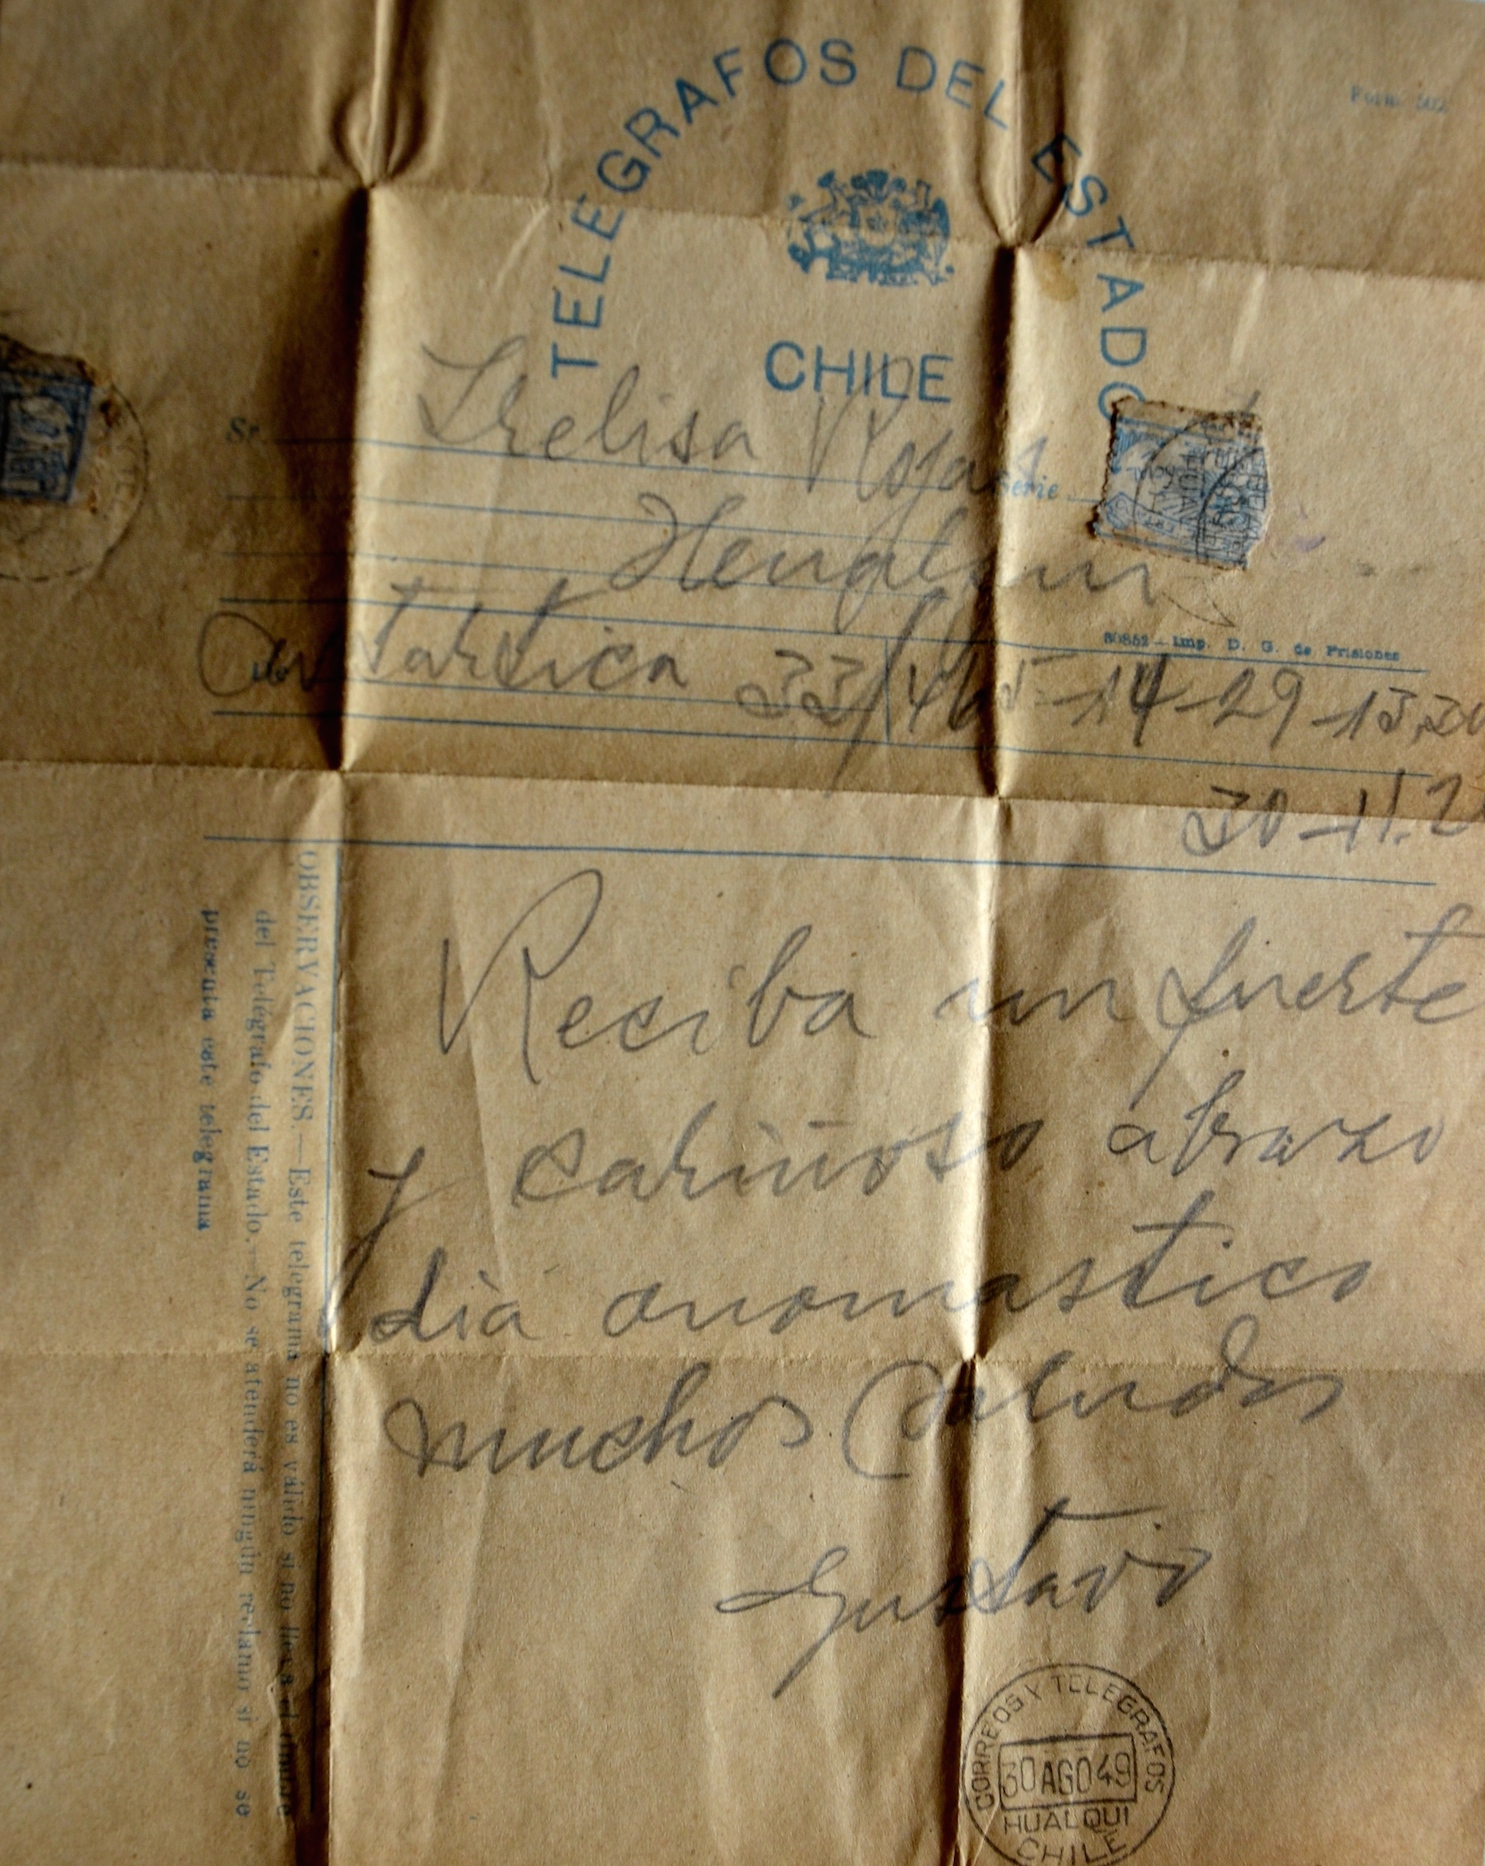 TELEGRAFOS DEL ESTADO
Form. 502
CHILE
Sr. Srelisa Rojas
Serie
Hualqui
50852 - Imp. D. G. de Prisiones
Antartica 33/465-14-29-13,20
30-11.2
Reciba un fuerte
y cariñoso abrazo
dia onomastico
muchos Saludos
Gustavo
OBSERVACIONES.—Este telegrama no es válido si no lleva el timbre
del Telégrafo del Estado.—No se atenderá ningún reclamo si no se
presenta este telegrama
CORREOS Y TELEGRAFOS
30 AGO 49
HUALQUI
CHILE